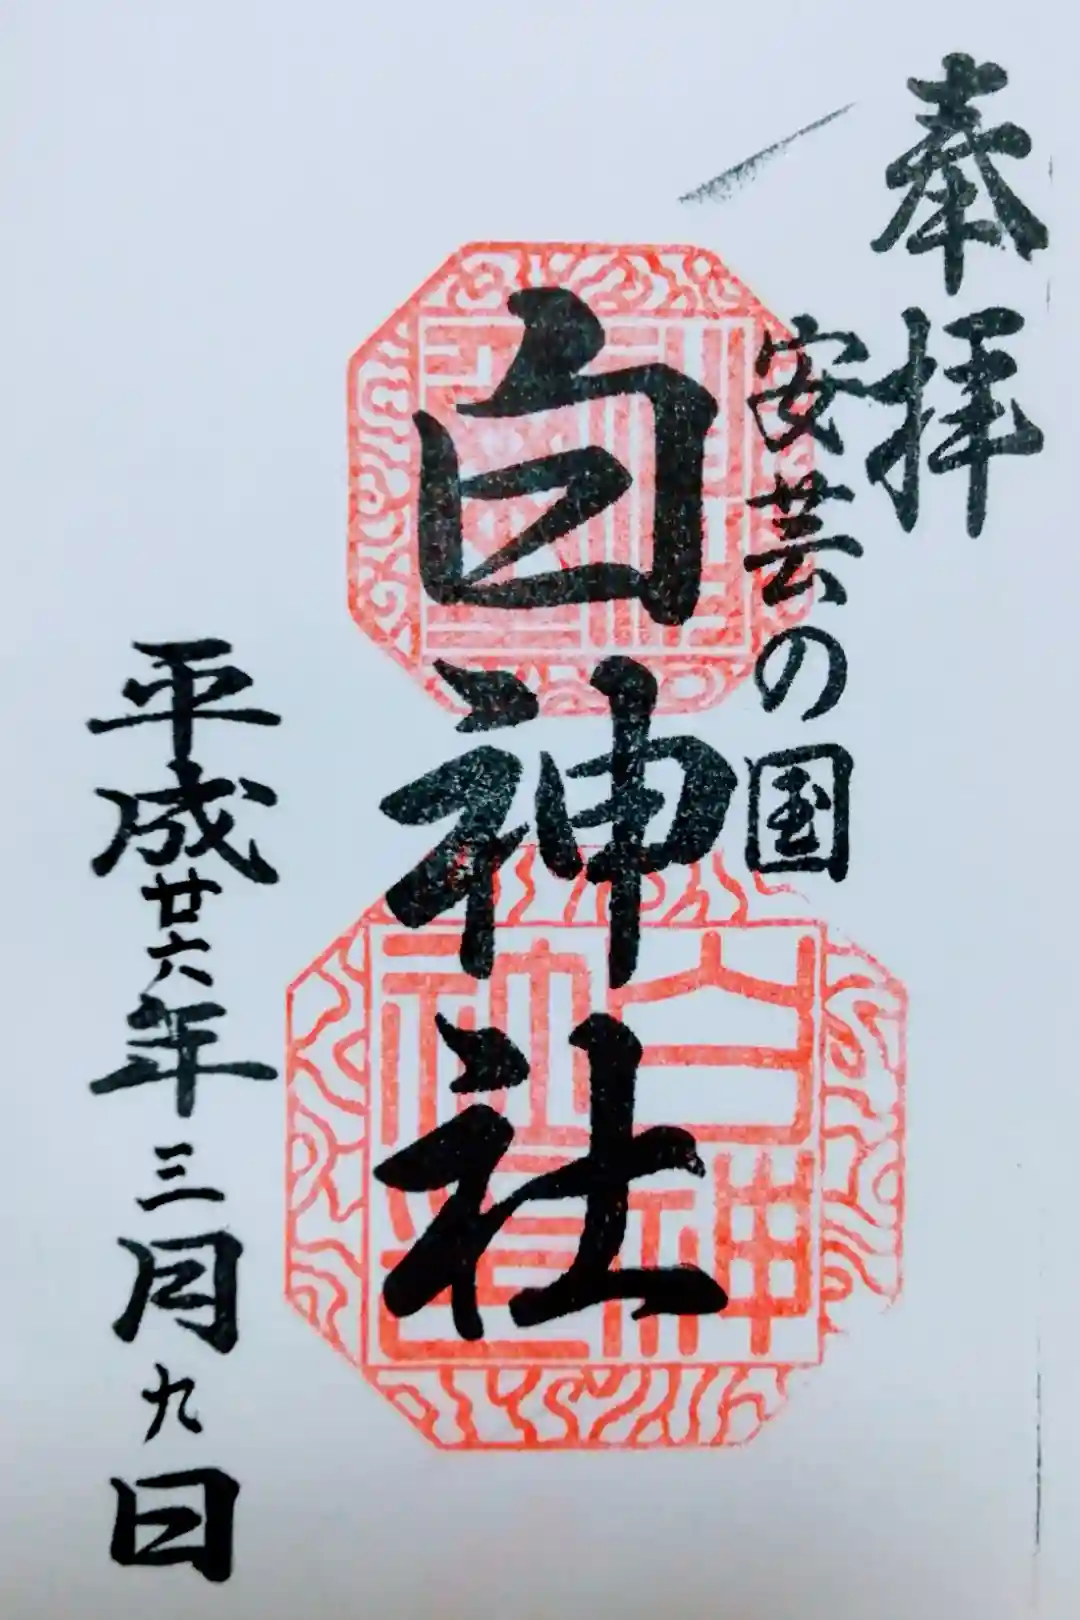 奉拝
安芸の国
白神社
平成廿六年三月九日